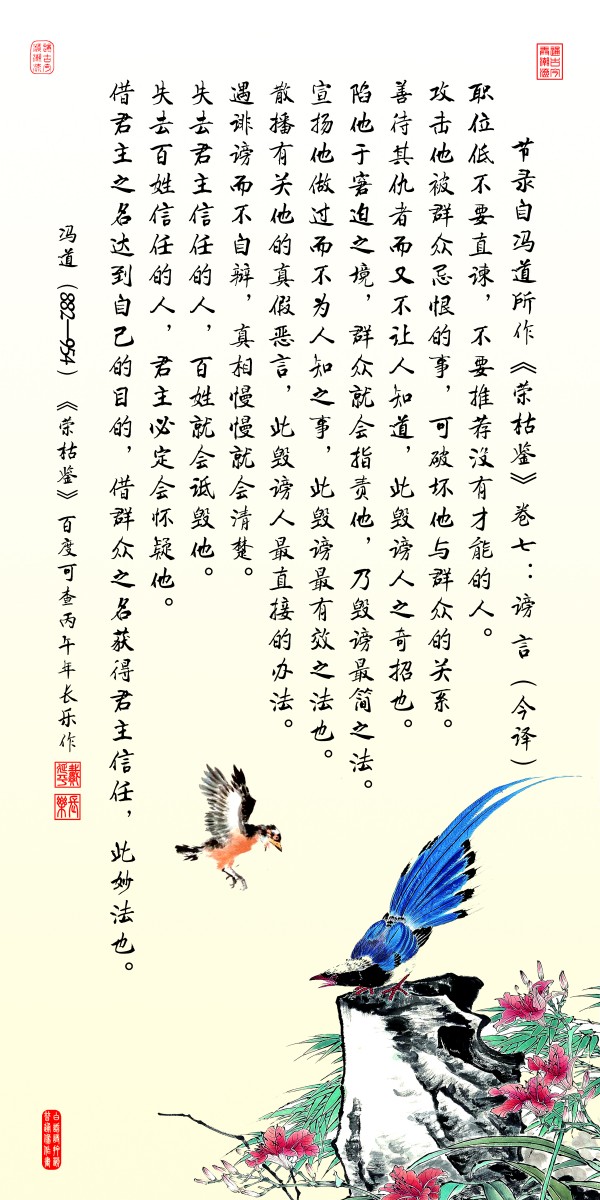 节录自冯道所作《荣枯鉴》卷七：谤言（今译）
职位低不要直谏，不要推荐没有才能的人。
攻击他被群众忌恨的事，可破坏他与群众的关系。
善待其仇者而又不让人知道，此毁谤人之奇招也。
陷他于窘迫之境，群众就会指责他，乃毁谤最简之法。
宣扬他做过而不为人知之事，此毁谤最有效之法也。
散播有关他的真假恶言，此毁谤人最直接的办法。
遇诽谤而不自辩，真相慢慢就会清楚。
失去君主信任的人，百姓就会诋毁他。
失去百姓信任的人，君主必定会怀疑他。
借君主之名达到自己的目的，借群众之名获得君主信任，此妙法也。
冯道（882—954）《荣枯鉴》百度可查丙午年长乐作